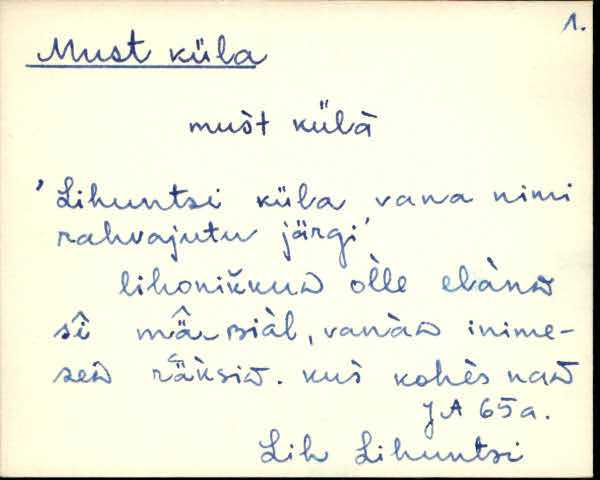 1.
Must küla
mus̀t külä̀
'Lihuntsi küla vana nimi
rahvajutu järgi'
lihonikkuD òlle elànD
sî mä̂ piàl, vanàD inime-
seD rä̀ḱsiD. kus̀ kohès naD
JA 65a.
Lih Lihuntsi